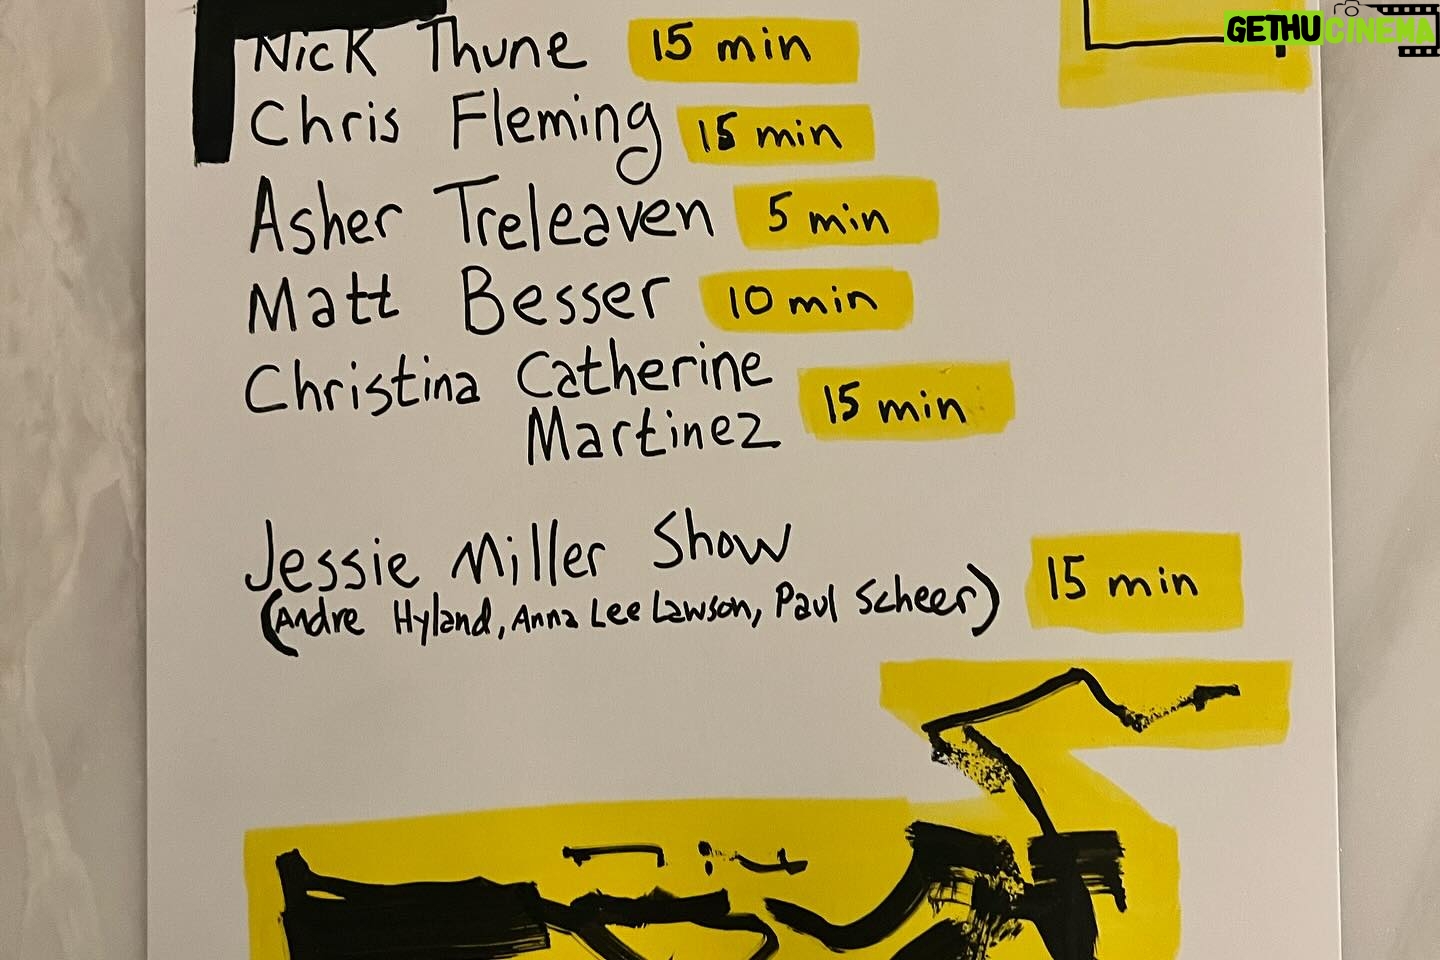 GETHU CINEMA
Nick Thune 15 min
Chris Fleming 15 min
Asher Treleaven 5 min
Matt Besser 10 min
Christina Catherine
Martinez 15 min
Jessie Miller Show
(Andre Hyland, Anna Lee Lawson, Paul Scheer) 15 min